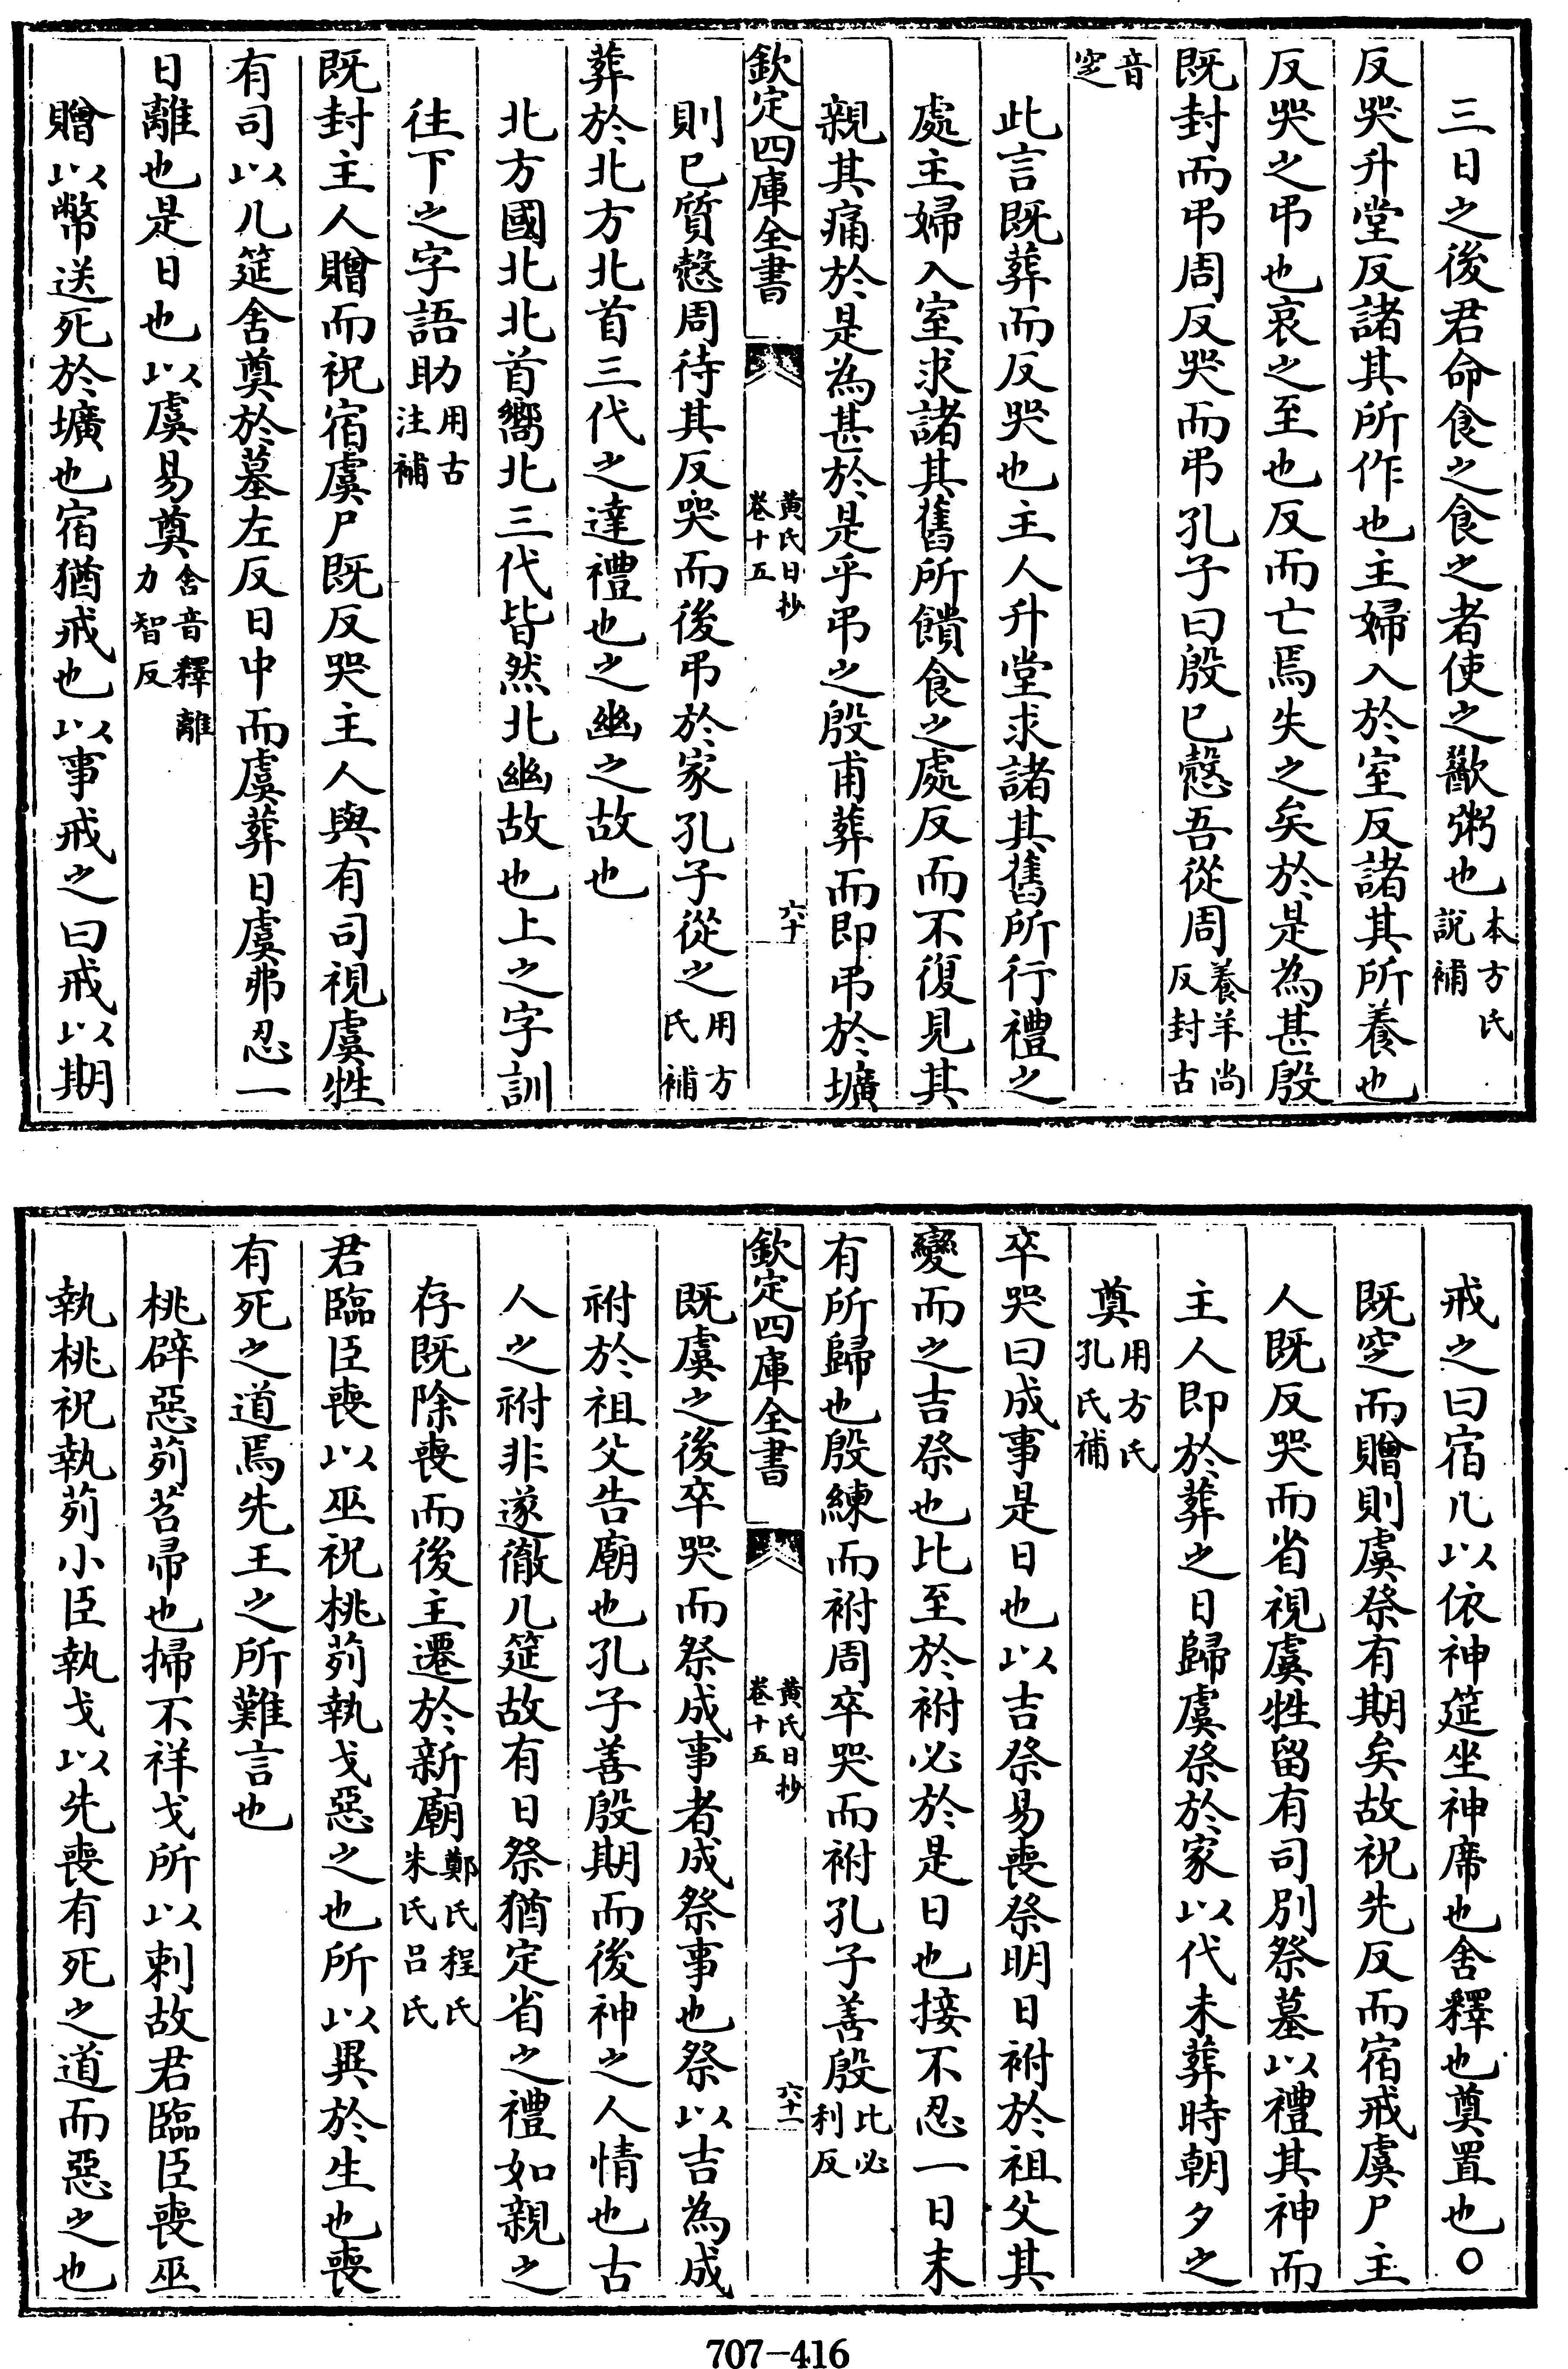 三日之後君命食之食之者使之歠粥也本方氏說補
反哭升堂反諸其所作也主婦入於室反諸其所養也
反哭之弔也哀之至也反而亡焉失之矣於是為甚殷
既封而弔周反哭而弔孔子曰殷已慤吾從周養羊尚反封古
音窆
此言既葬而反哭也主人升堂求諸其舊所行禮之
處主婦入室求諸其舊所饋食之處反而不復見其
親其痛於是為甚於是乎弔之殷甫葬而即弔於壙
欽定四庫全書 黃氏日抄卷十五 六十
則已質慤周待其反哭而後弔於家孔子從之用方氏補
葬於北方北首三代之達禮也之幽之故也
北方國北北首嚮北三代皆然北幽故也上之字訓
往下之字語助用古注補
既封主人贈而祝宿虞尸既反哭主人與有司視虞牲
有司以几筵舍奠於墓左反日中而虞葬日虞弗忍一
日離也是日也以虞易奠舍音釋離力智反
贈以幣送死於壙也宿猶戒也以事戒之曰戒以期
戒之曰宿几以依神筵坐神席也舍釋也奠置也○
既窆而贈則虞祭有期矣故祝先反而宿戒虞尸主
人既反哭而省視虞牲留有司別祭墓以禮其神而
主人即於葬之日歸虞祭於家以代未葬時朝夕之
奠用方氏孔氏補
卒哭曰成事是日也以吉祭易喪祭明日祔於祖父其
變而之吉祭也比至於祔必於是日也接不忍一日末
有所歸也殷練而祔周卒哭而祔孔子善殷比必利反
欽定四庫全書 黃氏日抄卷十五 六十一
既虞之後卒哭而祭成事者成祭事也祭以吉為成
祔於祖父告廟也孔子善殷期而後神之人情也古
人之祔非遂徹几筵故有日祭猶定省之禮如親之
存既除喪而後主遷於新廟鄭氏程氏朱氏呂氏
君臨臣喪以巫祝桃茢執戈惡之也所以異於生也喪
有死之道焉先王之所難言也
桃辟惡茢苕帚也掃不祥戈所以刺故君臨臣喪巫
執桃祝執茢小臣執戈以先喪有死之道而惡之也
707-416